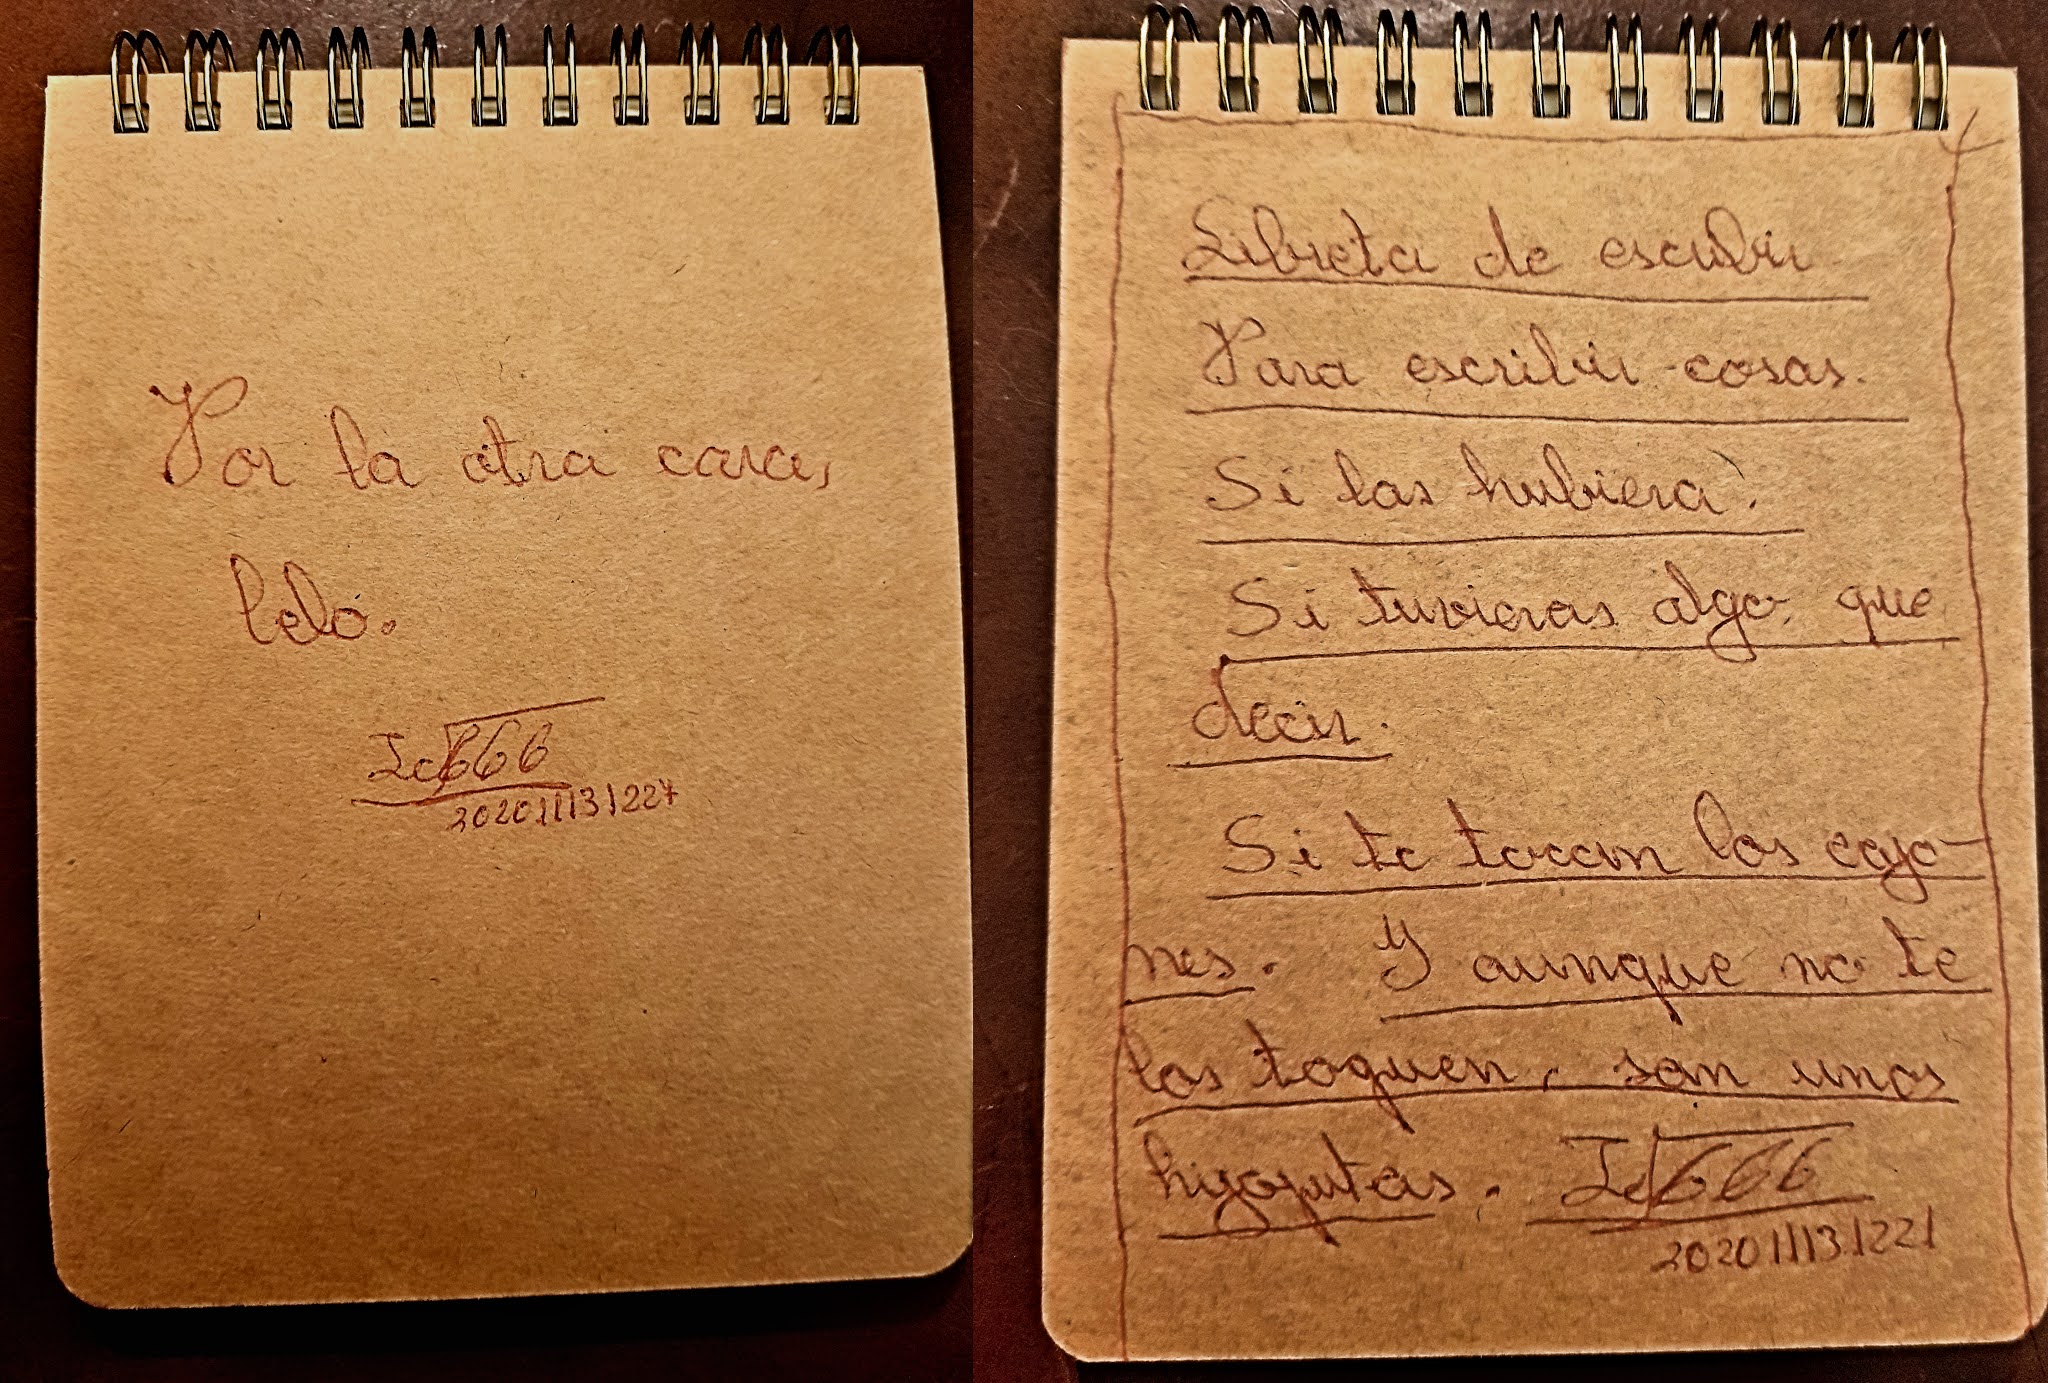 Por la otra cara,
lelo.
Ic666
202011131227
Libreta de escribir.
Para escribir cosas.
Si las hubiera.
Si tuvieras algo que
decir.
Si te tocan los cojo-
nes. Y aunque no te
los toquen, son unos
hijoputas. Ic666
202011131221